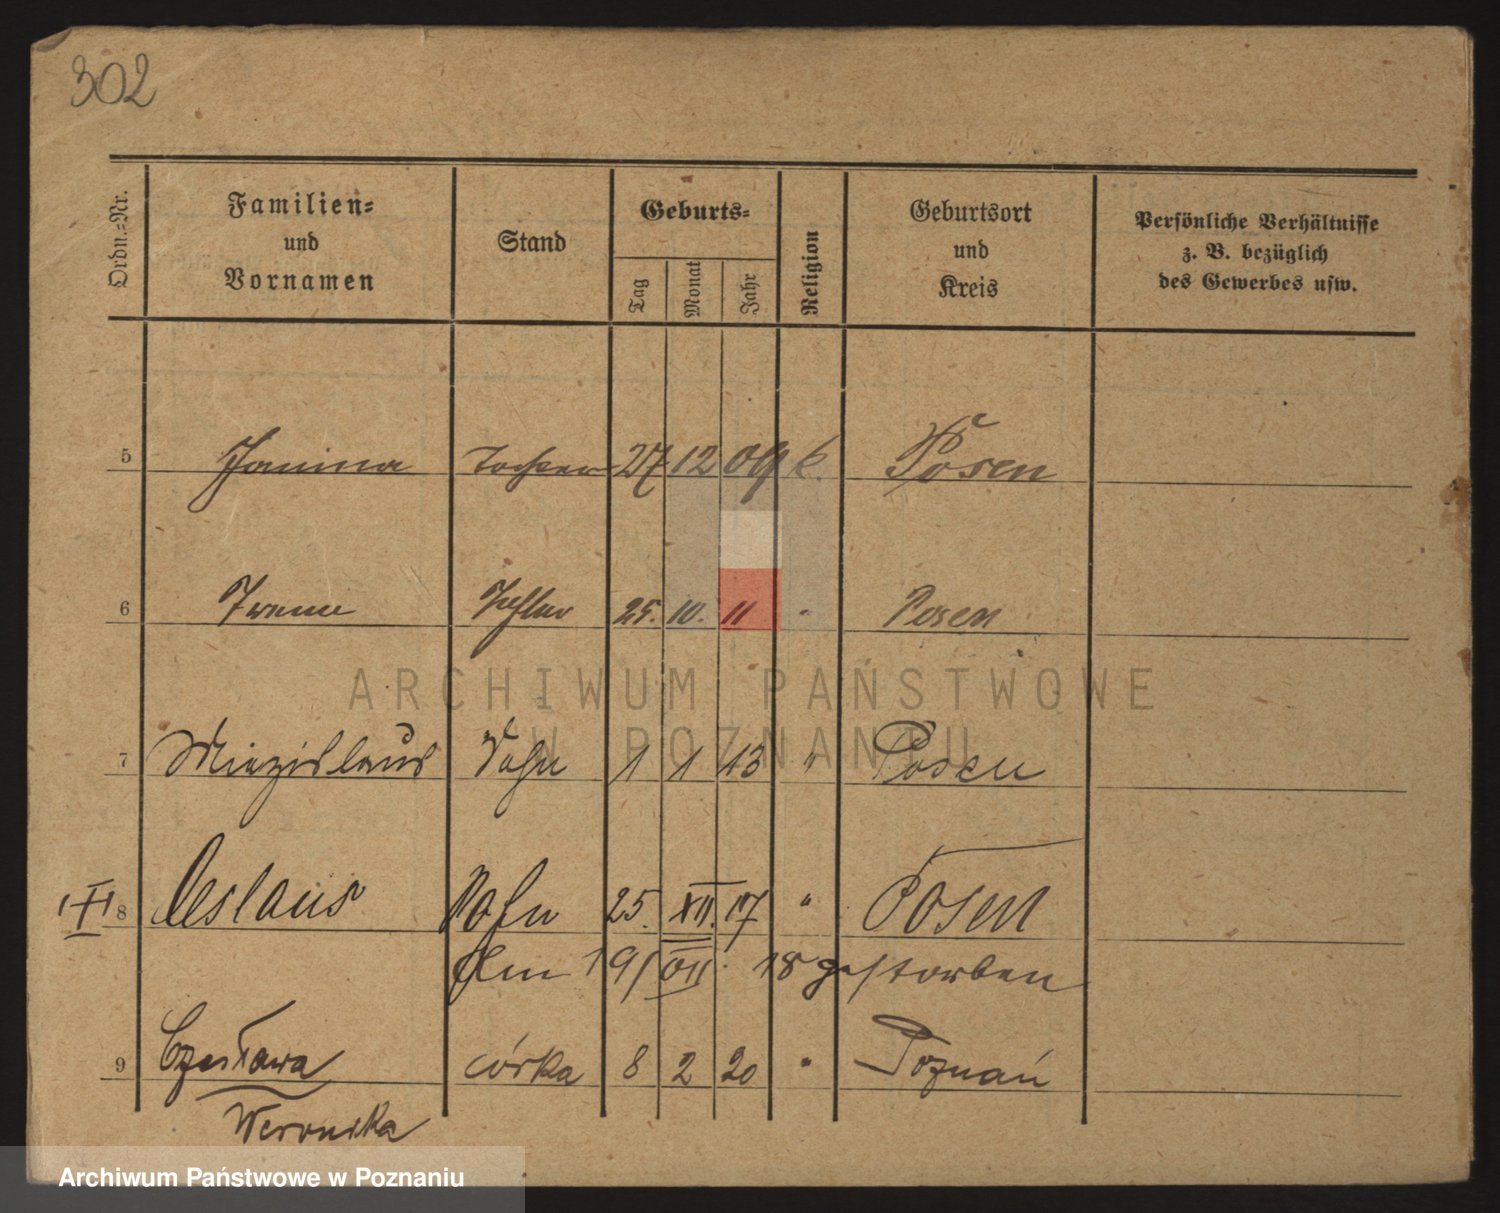 302
Ordn.-Nr.
Familien- und Vornamen
Stand
Geburts-
Tag Monat Jahr
Religion
Geburtsort und Kreis
Persönliche Verhältnisse z. B. bezüglich des Gewerbes usw.
5 Janina Tochter 27 12 09 k. Posen
6 Irene Tochter 25. 10. 11 " Posen
ARCHIWUM PAŃSTWOWE
W POZNANIU
7 Miezislaus Sohn 1 1 13 " Posen
8 Ceslaus Sohn 25. XII. 17 " Posen
gestorben
9 Czesława córka 8 2 20 " Poznań
Weronika
Archiwum Państwowe w Poznaniu